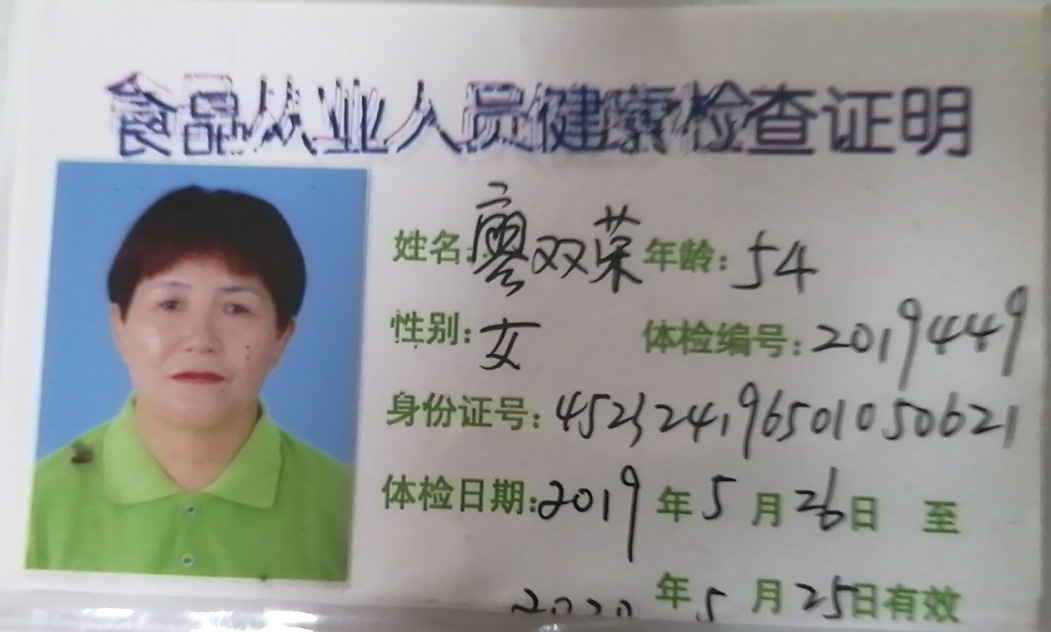 食品从业人员健康检查证明
姓名:廖双荣 年龄:54
性别:女 体检编号:2019449
身份证号:452324196501050621
体检日期:2019年5月26日 至
2020年5月25日有效